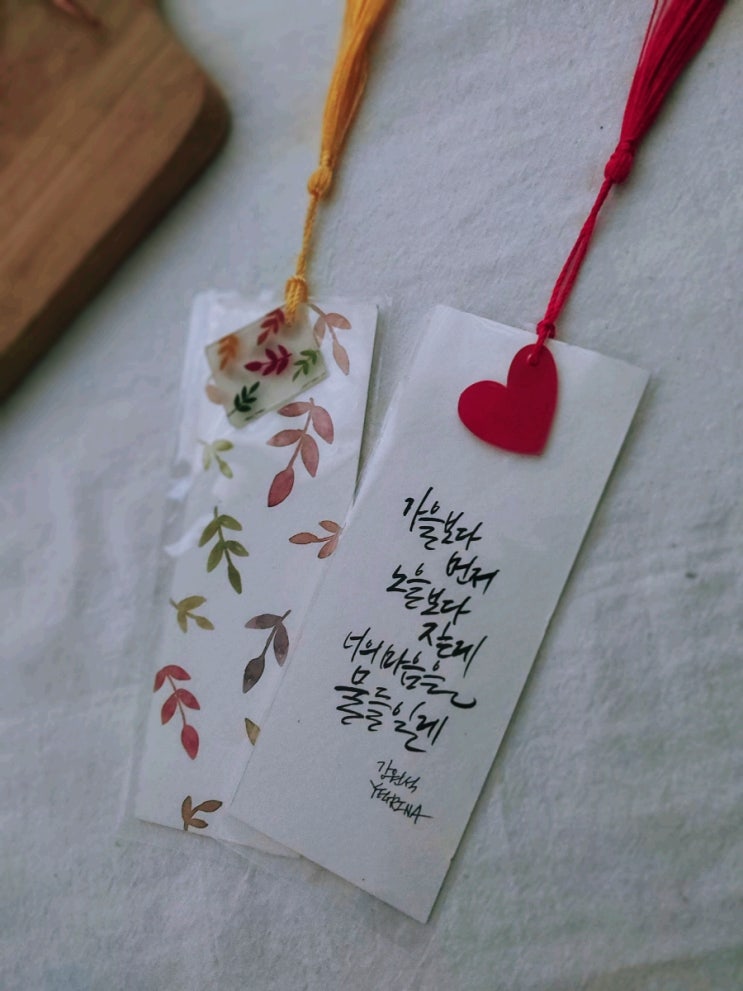 가을보다
먼저
노을보다
짙게
너의 마음을
물들일게
김원석
YEGRINA